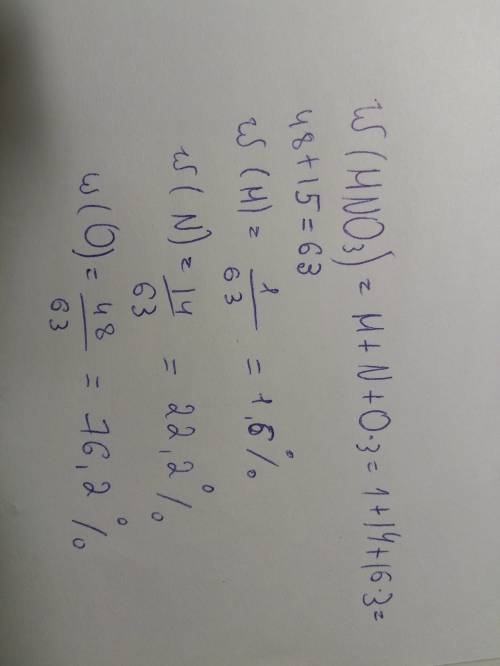 W(HNO₃) = H+N+O·3 = 1+14+16·3=
48+15=63
w(H) = 1/63 = 1,6%
w(N) = 14/63 = 22,2%
w(O) = 48/63 = 76,2%